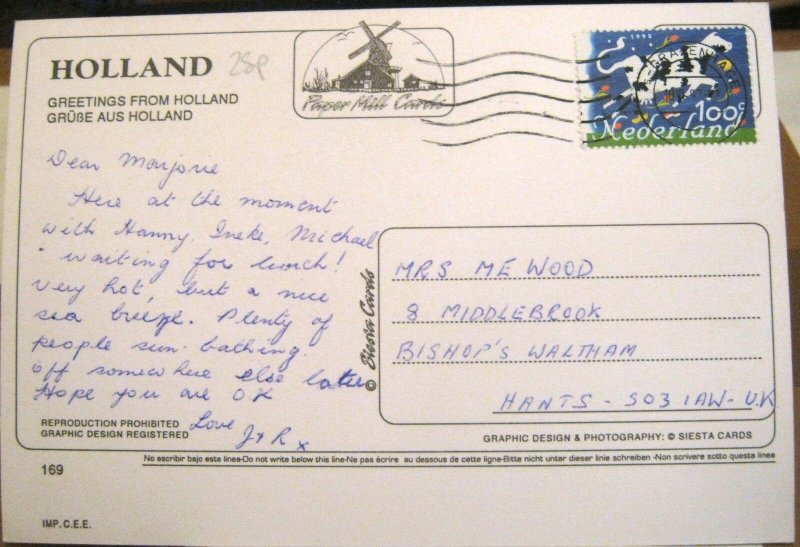 HOLLAND
28P
GREETINGS FROM HOLLAND
GRÜßE AUS HOLLAND
Paper Mill Cards
1995
100c
Nederland
Dear Marjorie
Here at the moment
with Hanny, Ineke, Michael
waiting for lunch!
Very hot, but a nice
sea breeze. Plenty of
people sun-bathing.
Off somewhere else later
Hope you are OK
Love
J & R x
© Siesta Cards
MRS ME WOOD
8 MIDDLEBROOK
BISHOP'S WALTHAM
HANTS - SO3 1AW - UK
REPRODUCTION PROHIBITED
GRAPHIC DESIGN REGISTERED
GRAPHIC DESIGN & PHOTOGRAPHY: © SIESTA CARDS
No escribir bajo esta linea-Do not write below this line-Ne pas écrire au dessous de cette ligne-Bitte nicht unter dieser linie schreiben -Non scrivere sotto questa linea
169
IMP.C.E.E.